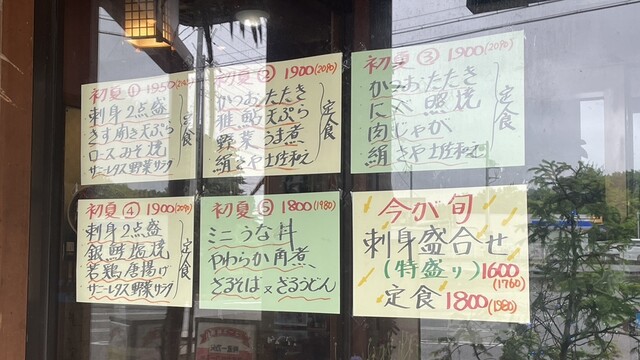 初夏① 1950(2145)
刺身2点盛
きす開き天ぷら
ロースみそ焼
サニーレタス野菜サラダ
定食
初夏② 1900(2090)
かつおたたき
稚鮎天ぷら
野菜うま煮
絹さや土佐和え
定食
初夏③ 1900(2090)
かつおたたき
にべ照焼
肉じゃが
絹さや土佐和え
定食
初夏④ 1900(2090)
刺身2点盛
銀鮭塩焼
若鶏唐揚げ
サニーレタス野菜サラダ
定食
初夏⑤ 1800(1980)
ミニうな丼
やわらか角煮
ざるそば又ざるうどん
今が旬
刺身盛合せ
(特盛り)1600
(1760)
定食1800(1980)